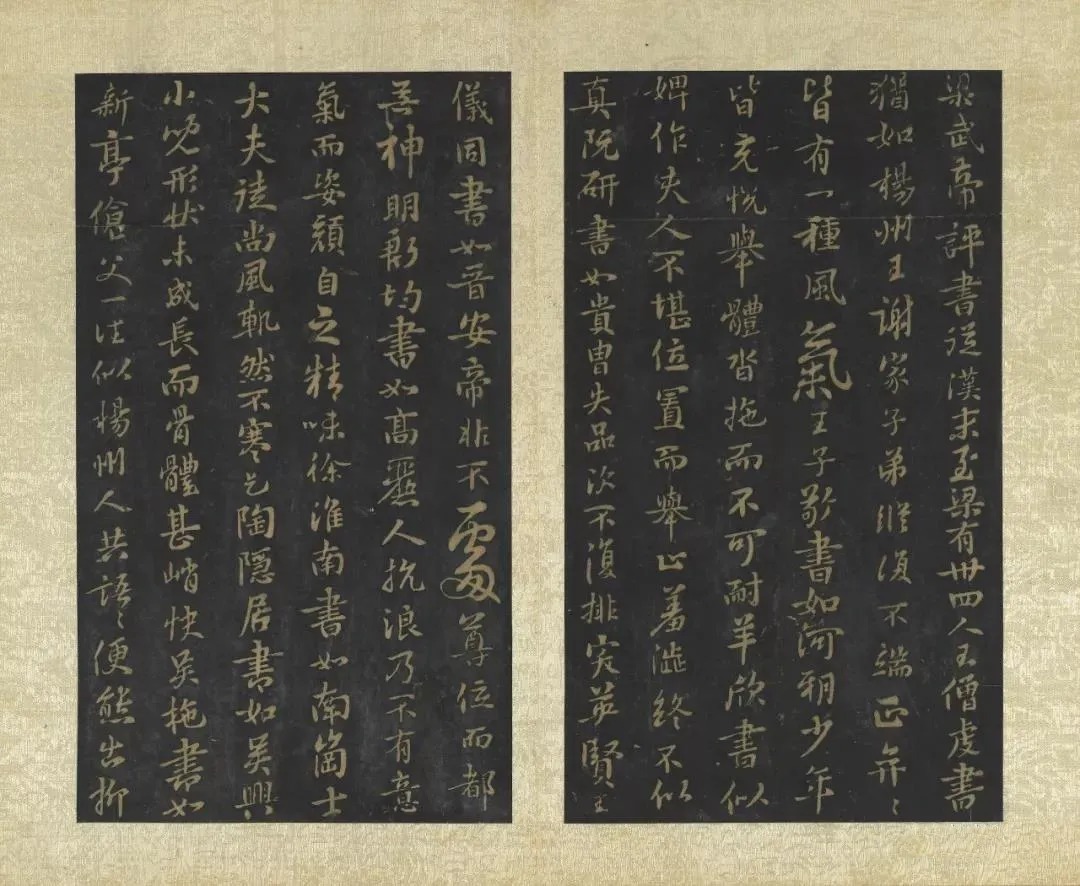 梁武帝評書從漢末至梁有卅四人王僧虔書
猶如楊州王謝家子弟縱復不端正弈〻
皆有一種風氣王子敬書如河朔少年
皆充悦舉體沓拖而不可耐羊欣書似
婢作夫人不堪位置而舉止羞澁終不似
真阮研書如貴胄失品次不復排突英賢王
儀同書如晋安帝非不處尊位而都
無神明郄均書如高麗人抗浪乃不有意
氣而姿顔自乏精味徐淮南書如南崗士
大夫徒尚風軌然不寒乞陶隱居書如吳興
小兒形状未成長而骨體甚峭快吳施書如
新亭傖父一往似楊州人共語〻便態出柳